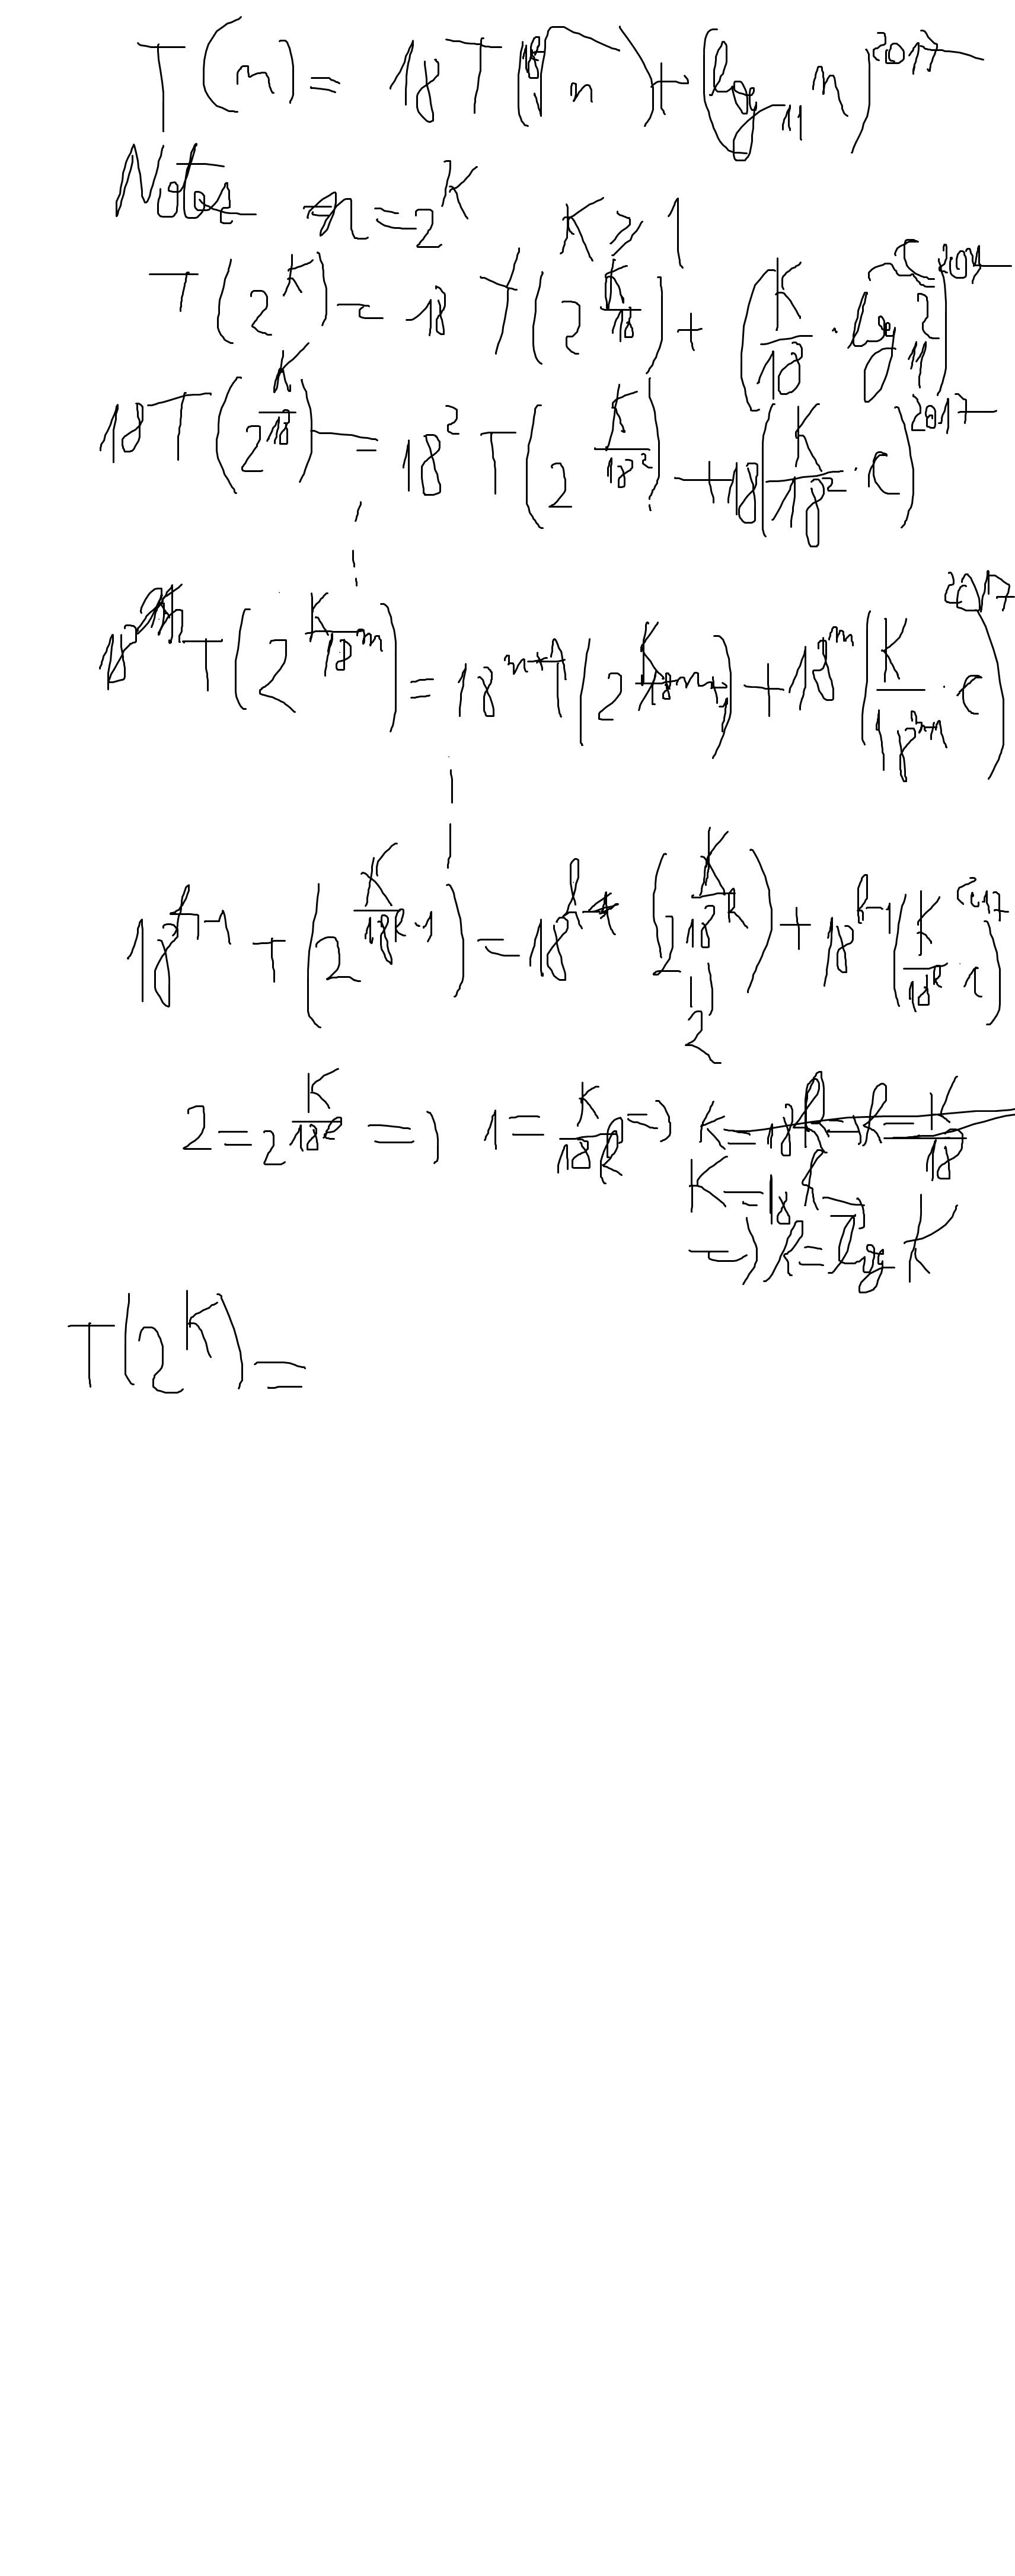 T(n) = 18T(\sqrt[18]{n}) + (log_{11} n)^{2017}
Notes n = 2^K K ≥ 1
T(2^K) = 18 T(2^{K/18}) + (K/18 · log_{11} 2)^{201} C
18T(2^{K/18}) = 18^2 T(2^{K/18^2}) + 18(K/18^2 · C)^{2017}
18^m T(2^{K/18^m}) = 18^{m+1} (2^{K/18^{m+1}}) + 18^m (K/18^{m+1} · C)^{2017}
18^{k-1} T(2^{K/18^{k-1}}) = 18^k (2^{K/18^k}) + 18^{k-1} (K/18^k · C)^{2017}
2
2 = 2^{K/18^k} => 1 = K/18^k => K = 18^k → k = K/18
K = 18^k →
=> k = log K
T(2^K) =